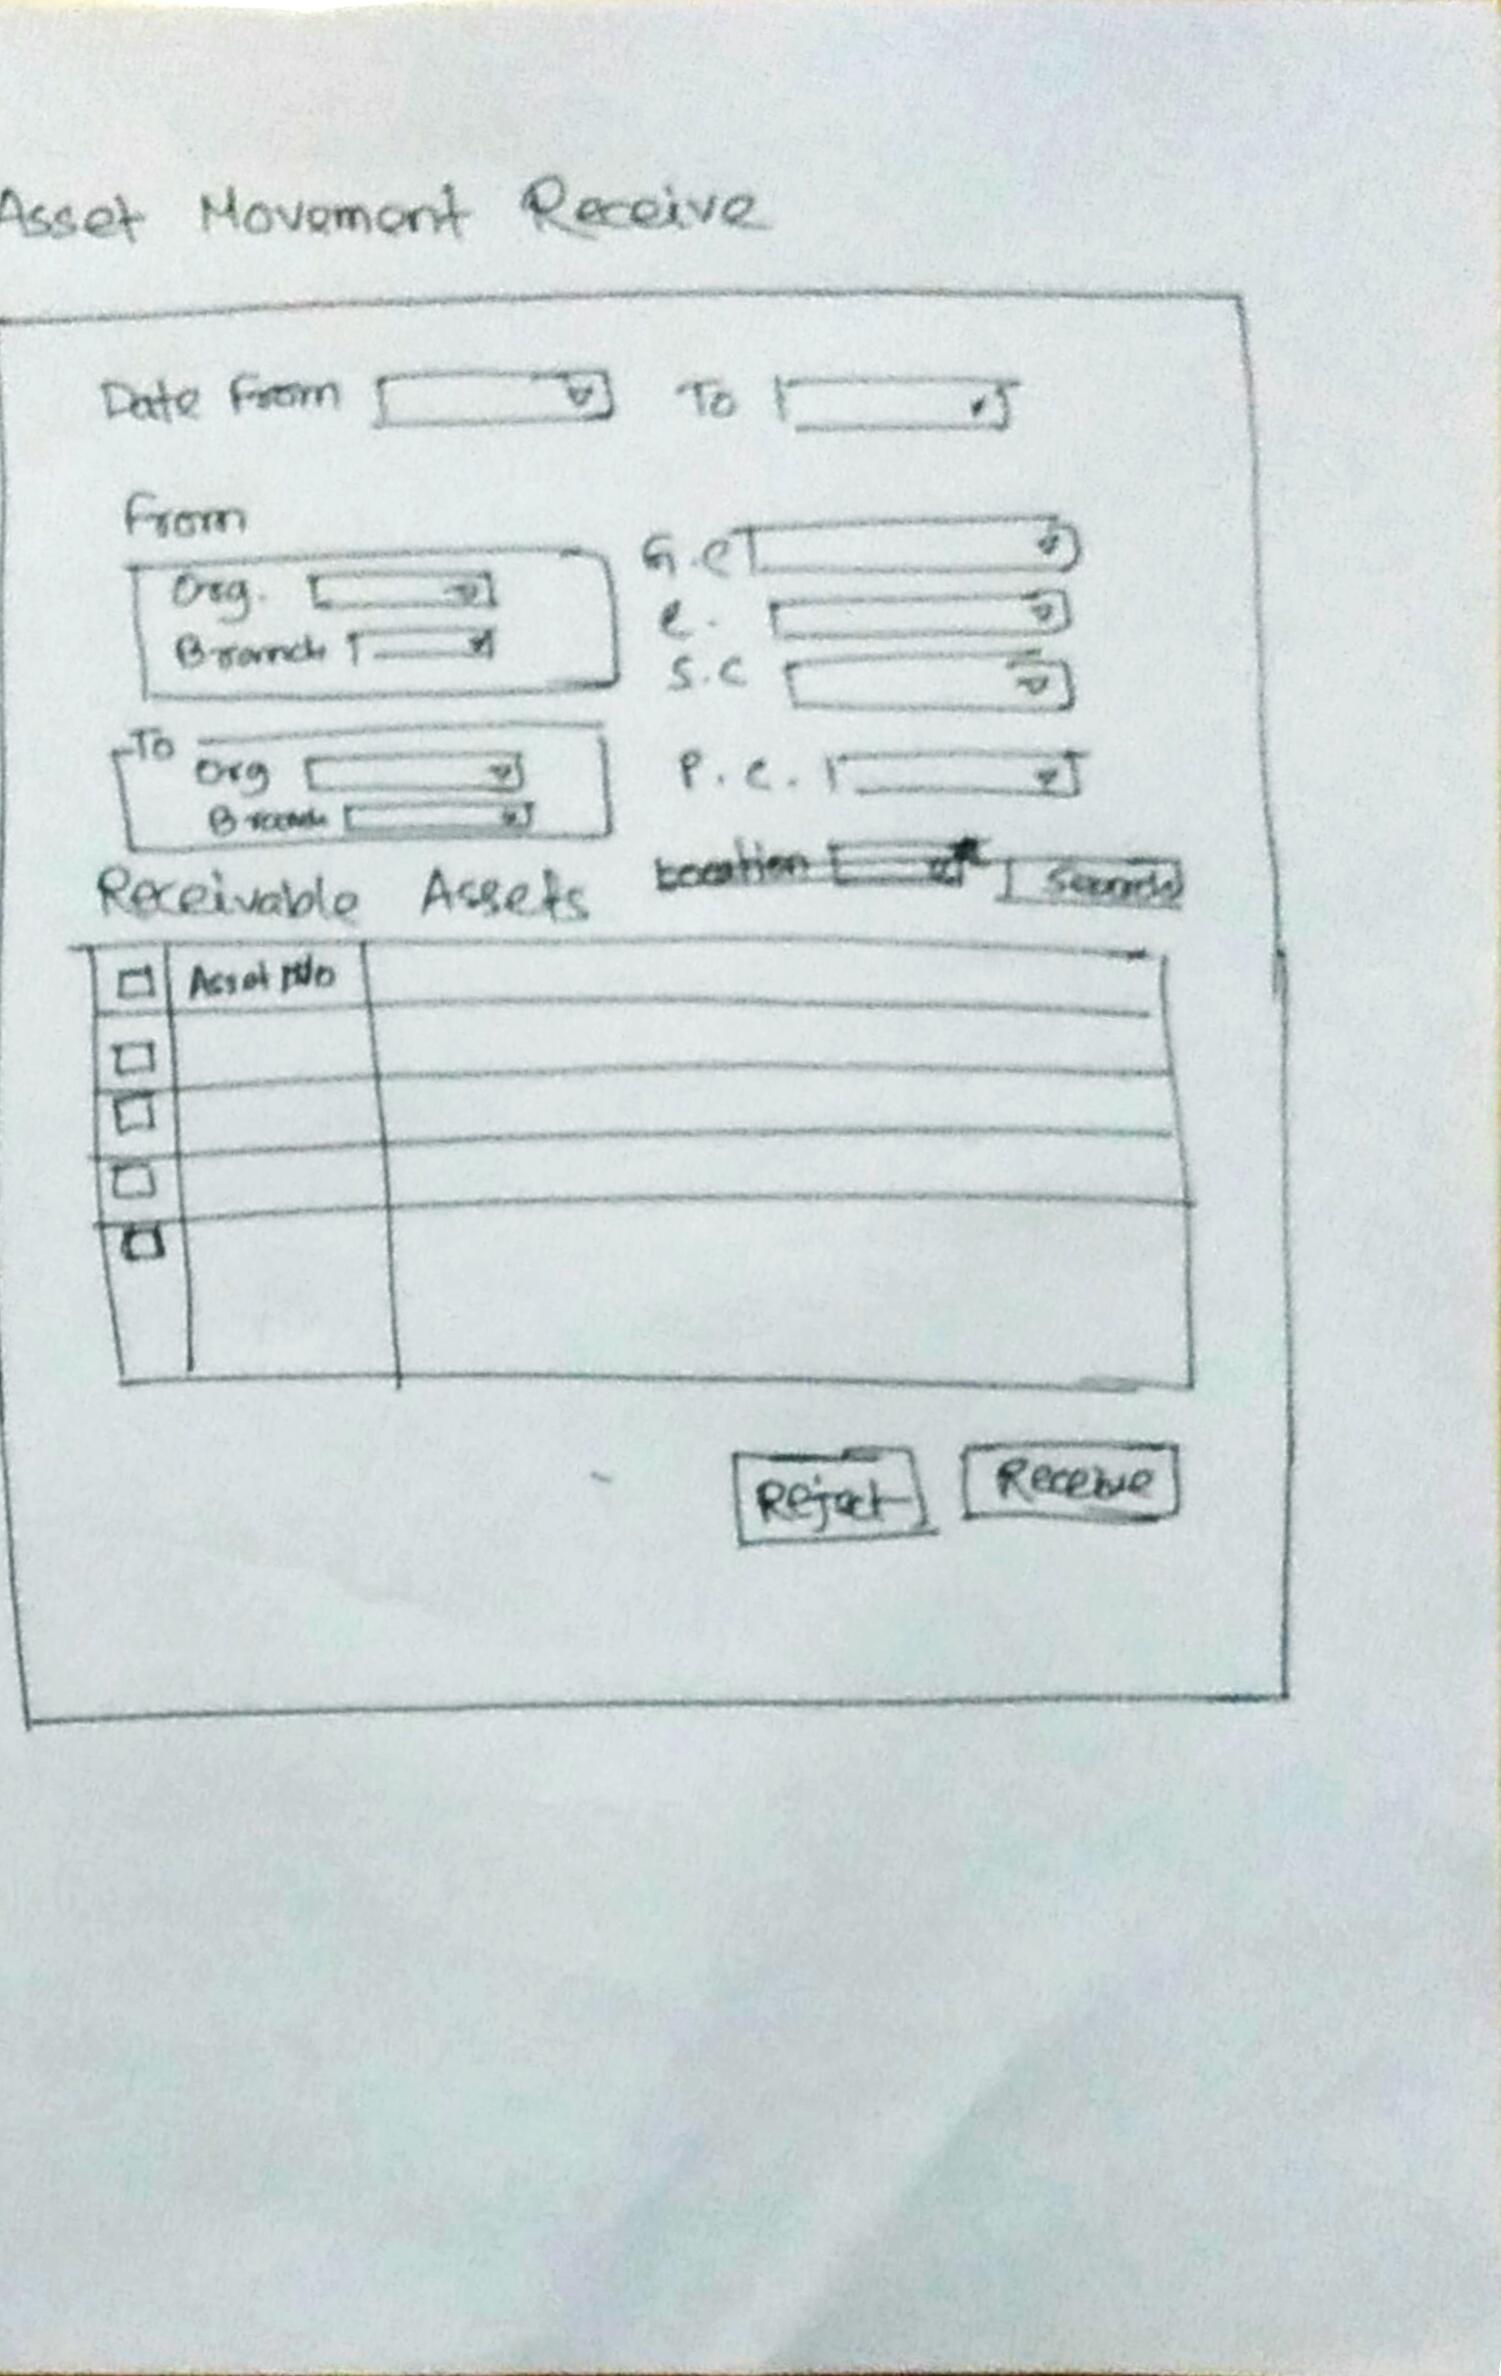 Asset Movement Receive
Date From To
From
Org.
Branch
G.C
C.
S.C
To
Org
Branch
P.C.
Location
Search
Receivable Assets
Asset No
Reject
Receive